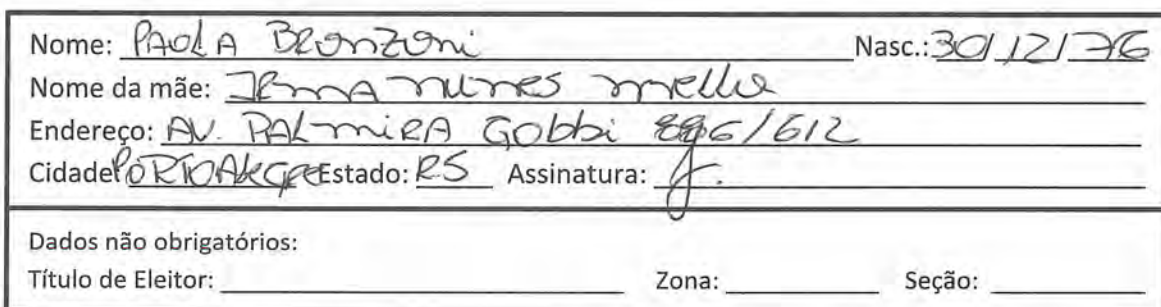 Nome: PAOLA BRONZONI Nasc.: 30/12/76
Nome da mãe: IRMA NUNES mello
Endereço: AV. PALMIRA Gobbi 896/612
Cidade PORTO ALEGRE Estado: RS Assinatura:
Dados não obrigatórios:
Título de Eleitor: Zona: Seção: